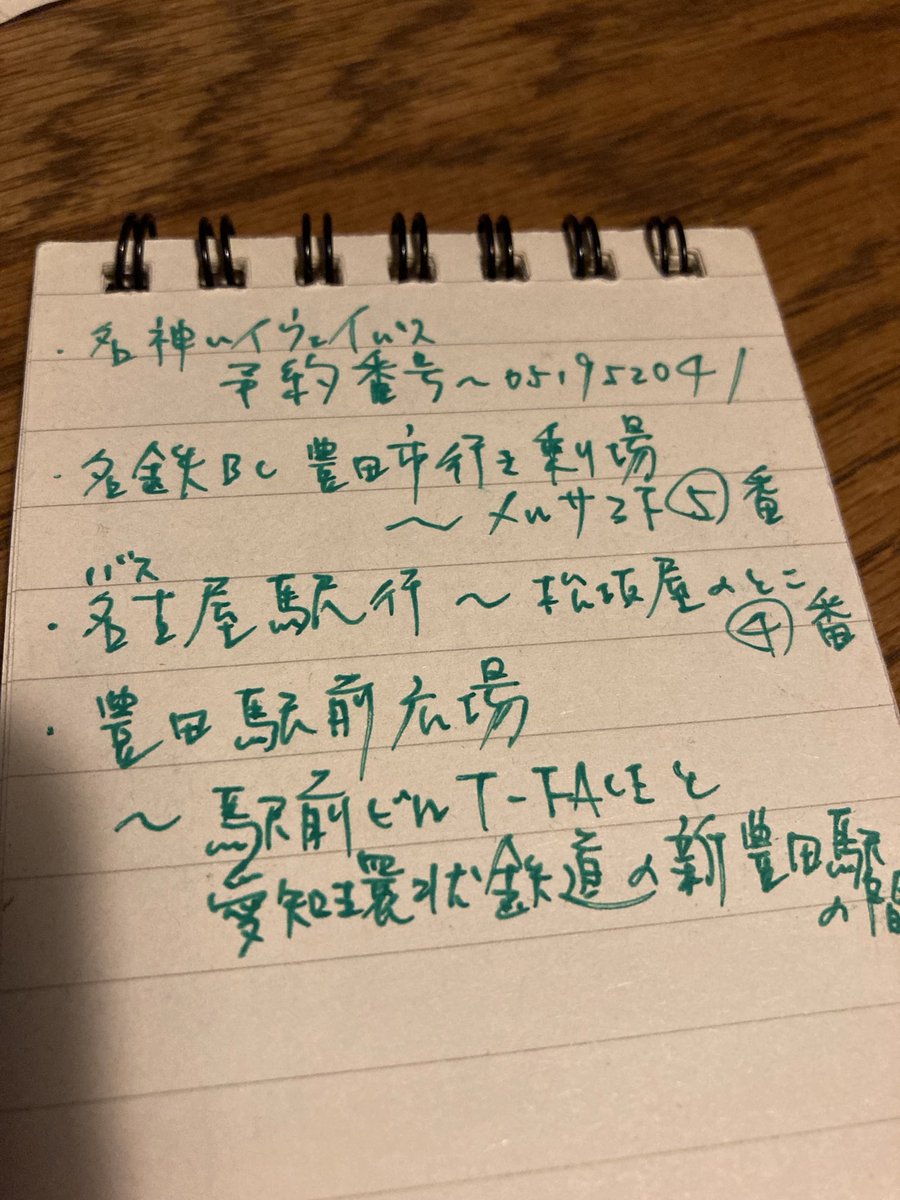 ・名神ハイウェイバス
予約番号～051952041
・名鉄BC 豊田市行き乗り場
～メルサ1F⑤番
バス
・名古屋駅行～松坂屋のとこ
④番
・豊田駅前広場
～駅前ビルT-FACEと
愛知環状鉄道の新豊田駅
の間